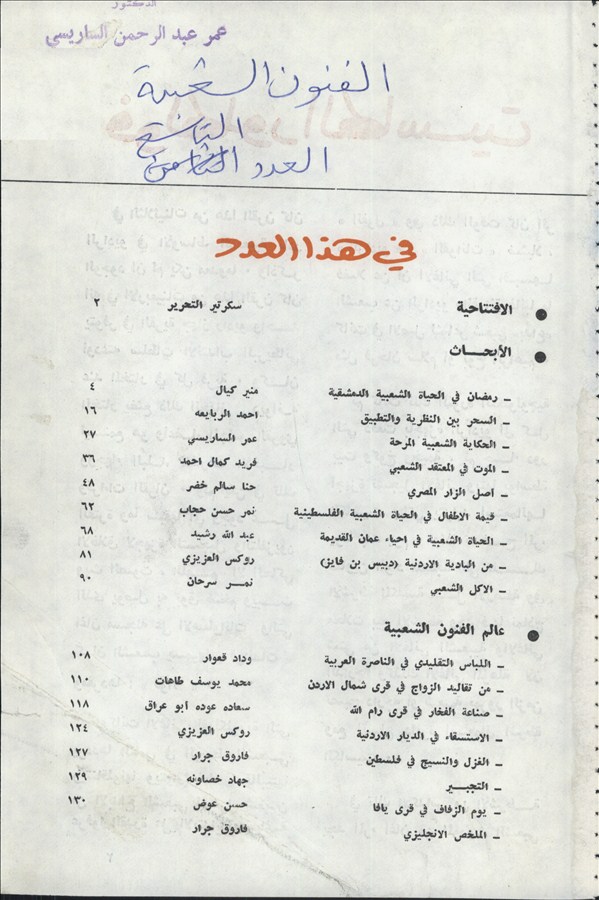 الدكتور
عمر عبد الرحمن الساريسي
الفنون الشعبية
التاسع
العدد الثامن
في هذا العدد
● الافتتاحية سكرتير التحرير ٢
● الأبحـــاث
– رمضان في الحياة الشعبية الدمشقية منير كيال ٤
– السحر بين النظرية والتطبيق احمد الربايعه ١٦
– الحكاية الشعبية المرحة عمر الساريسي ٢٧
– الموت في المعتقد الشعبي فريد كمال احمد ٣٦
– اصل الزار المصري حنا سالم خضر ٤٨
– قيمة الاطفال في الحياة الشعبية الفلسطينية نمر حسن حجاب ٦٢
– الحياة الشعبية في احياء عمان القديمة عبد الله رشيد ٦٨
– من البادية الاردنية (دبيس بن فايز) روكس العزيزي ٨١
– الاكل الشعبي نمـــر سرحان ٩٠
● عالم الفنون الشعبية
– اللباس التقليدي في الناصرة العربية وداد قعوار ١٠٨
– من تقاليد الزواج في قرى شمال الاردن محمد يوسف طاهات ١١٠
– صناعة الفخار في قرى رام الله سعاده عوده ابو عراق ١١٨
– الاستسقاء في الديار الاردنية روكس العزيزي ١٢٤
– الغزل والنسيج في فلسطين فاروق جرار ١٢٧
– التجبـــير جهاد خصاونه ١٢٩
– يوم الزفاف في قرى يافا حسن عوض ١٣٠
– الملخص الانجليزي فاروق جرار